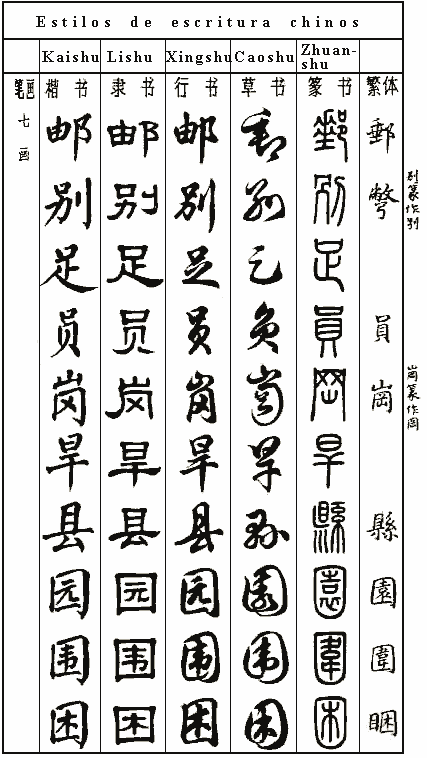 Estilos de escritura chinos
Kaishu Lishu Xingshu Caoshu Zhuan-shu
笔画 楷书 隶书 行书 草书 篆书 繁体
七画
邮 邮 邮 邮 郵 郵
别 别 别 别 别 彆
别篆作别
足 足 足 足 足
员 员 员 员 員 員
岗 岗 岗 岗 岡 崗
崗篆作岡
旱 旱 旱 旱 旱
县 县 县 县 縣 縣
园 园 园 园 園 園
围 围 围 围 圍 圍
困 困 困 困 困 睏